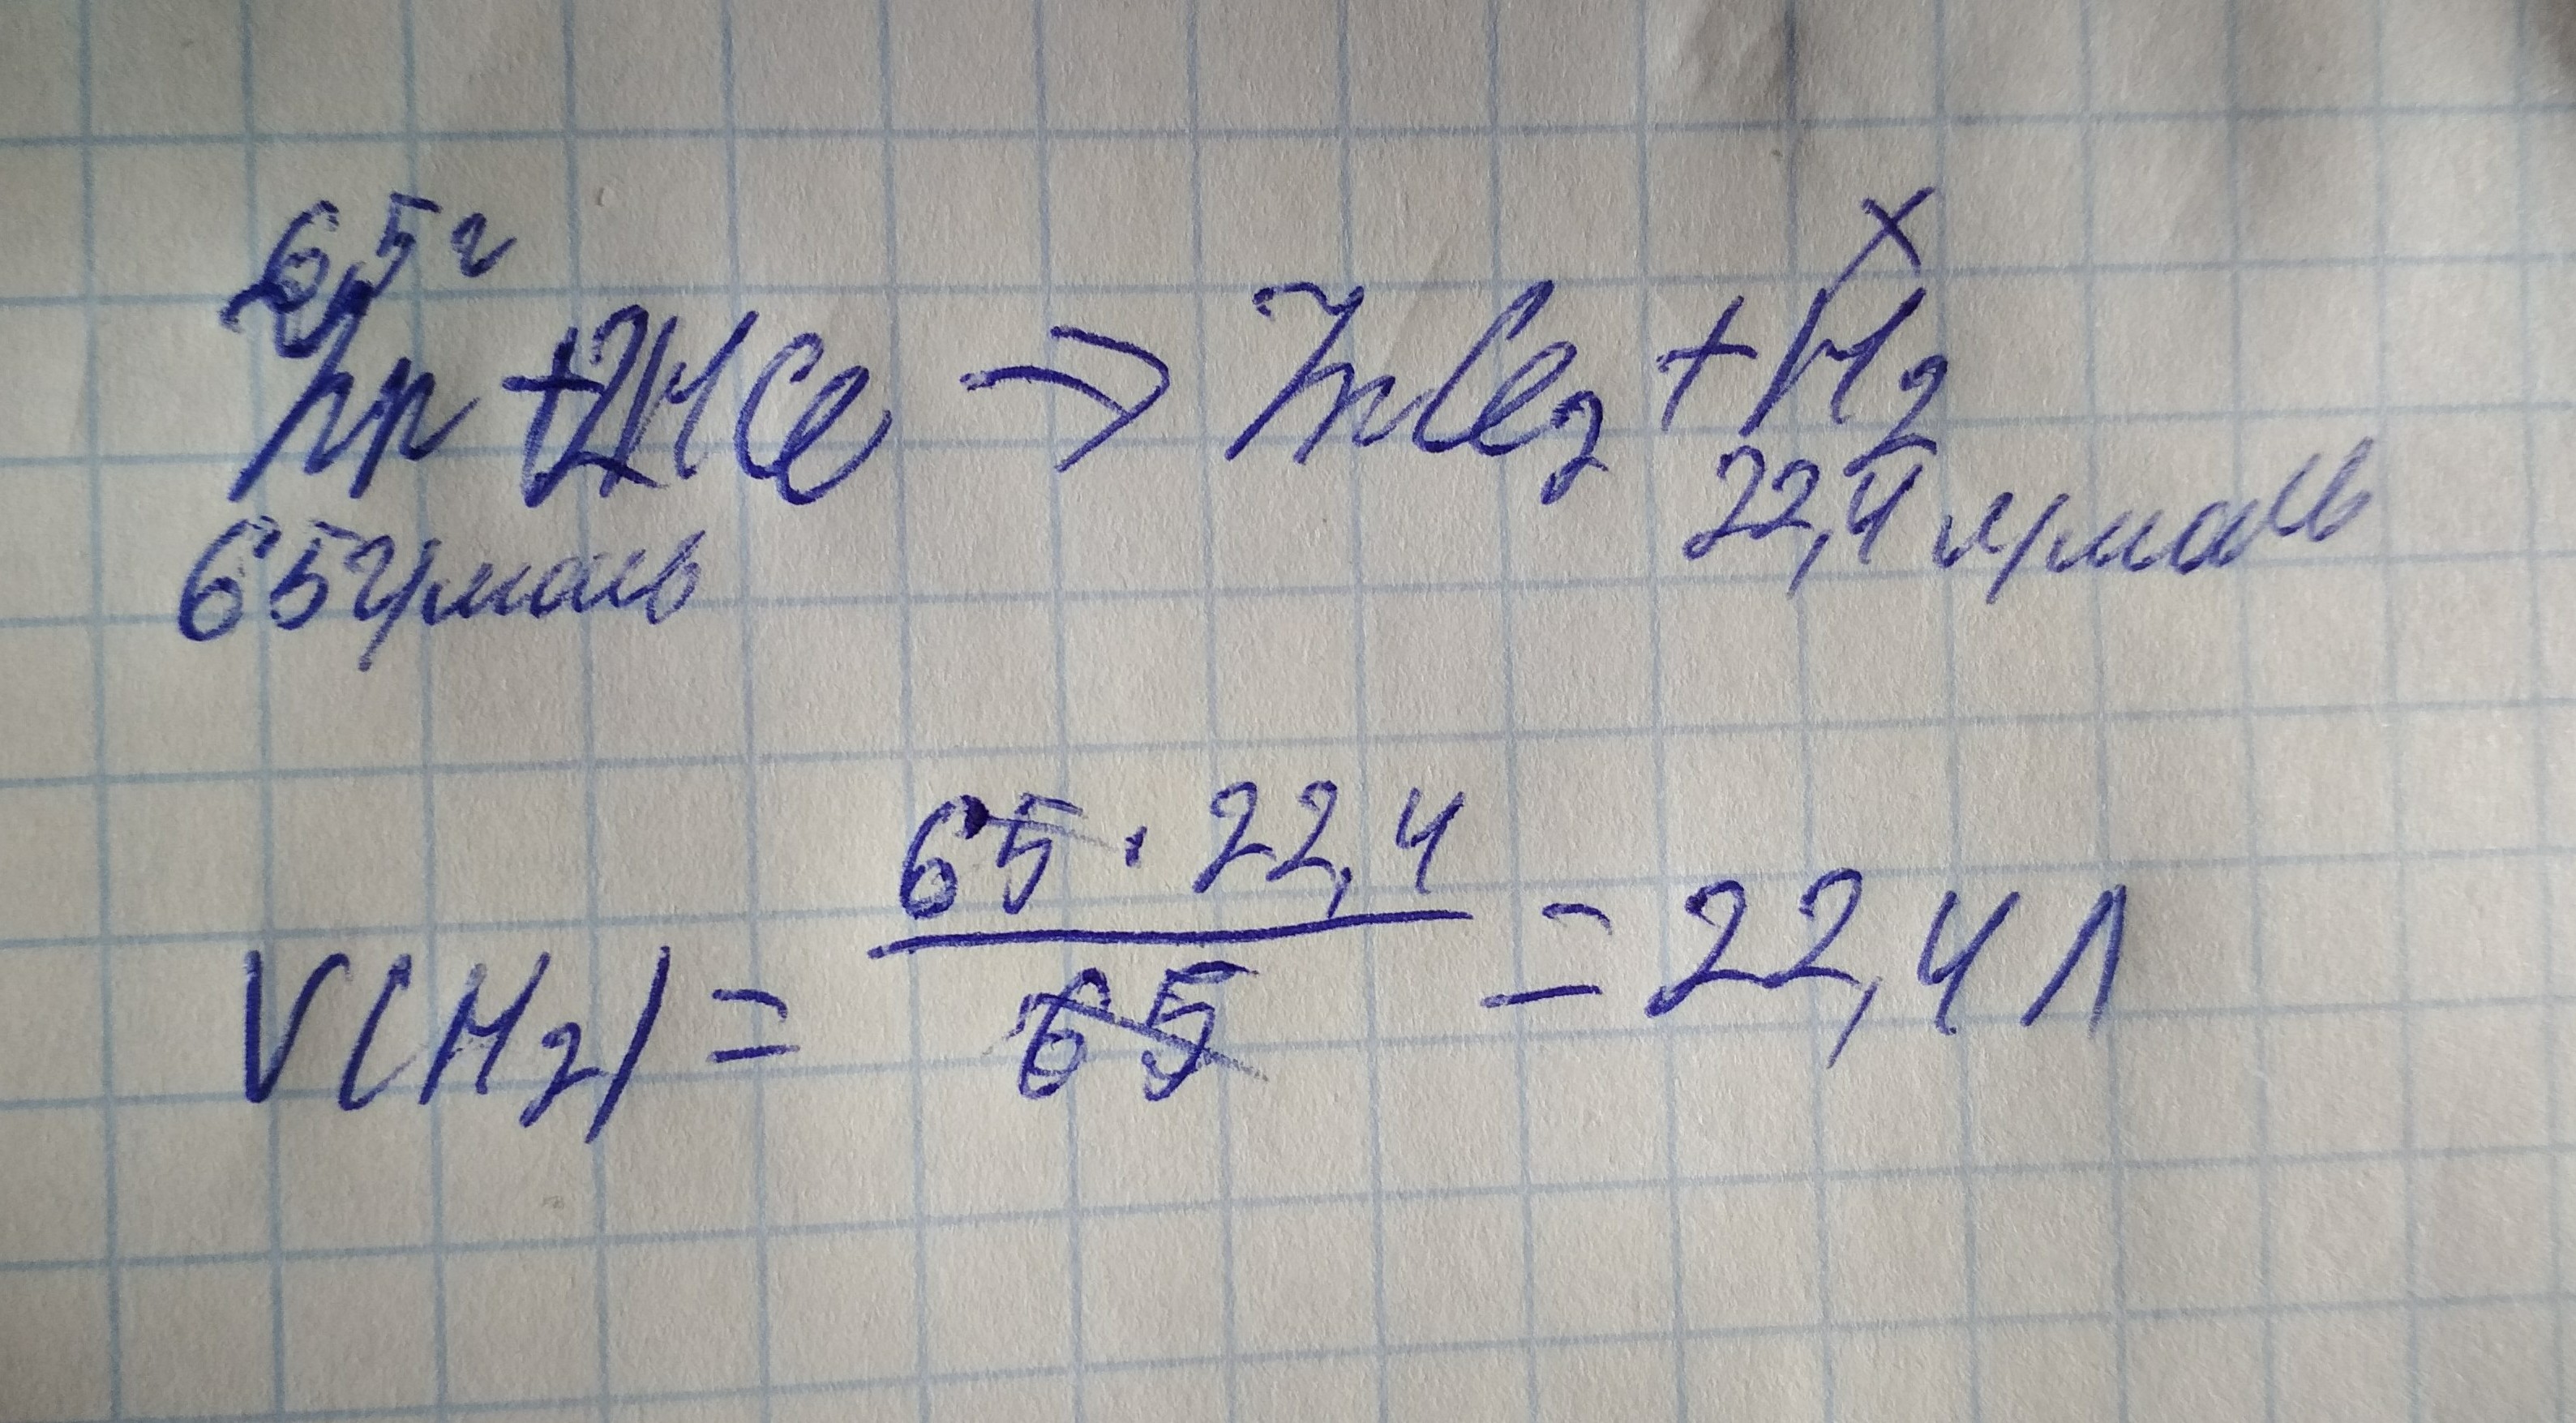 6,5 г x
Zn + 2HCl → ZnCl₂ + H₂
65 г/моль 22,4 л/моль
V(H₂) = 65 · 22,4 / 65 = 22,4 л